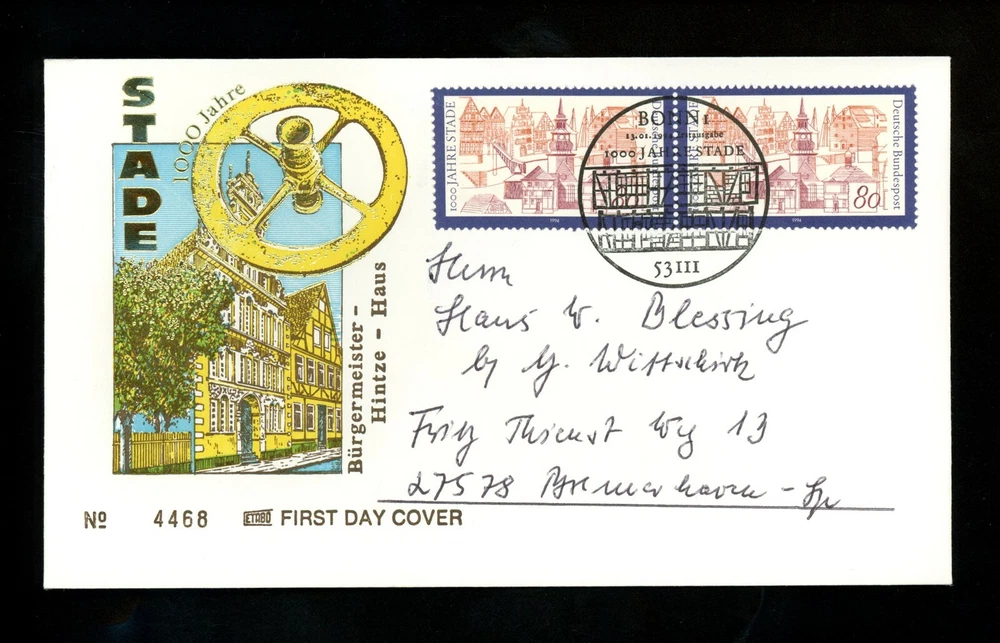 STADE
1000 Jahre
Bürgermeister-
Hintze-Haus
1000 JAHRE STADE
80
1994
Deutsche Bundespost
80
1994
BONN 1
13.01.1994 Erstausgabe
1000 JAHRE STADE
53111
Herrn
Hans W. Blessing
by G.
Fritz Weg 13
27578 Bremerhaven - Sp
№ 4468 ETABO FIRST DAY COVER